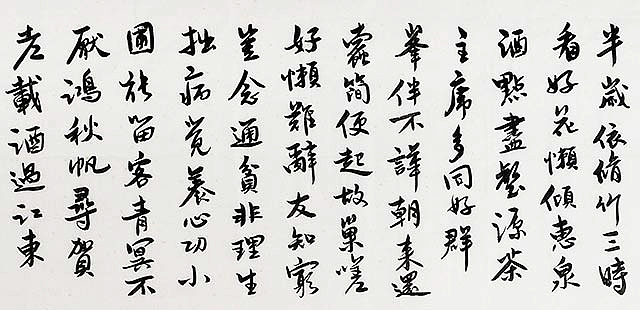 半歲依脩竹三時
看好花懶傾惠泉
酒點盡壑源茶
主席多同好群
峯伴不譁朝来還
蠹簡便起故巢嗟
好懶難辭友知窮
豈念通貧非理生
拙病覺養心功小
圃能留客青冥不
厭鴻秋帆尋賀
老載酒過江東